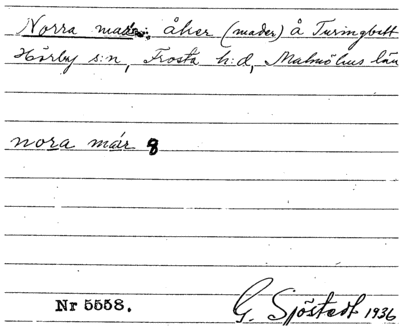 Norra mader, åker (mader) å Turingtoft
Hörby s:n, Frosta h:d, Malmöhus län
nora máır 8
Nr 5558.
G. Sjöstedt 1936